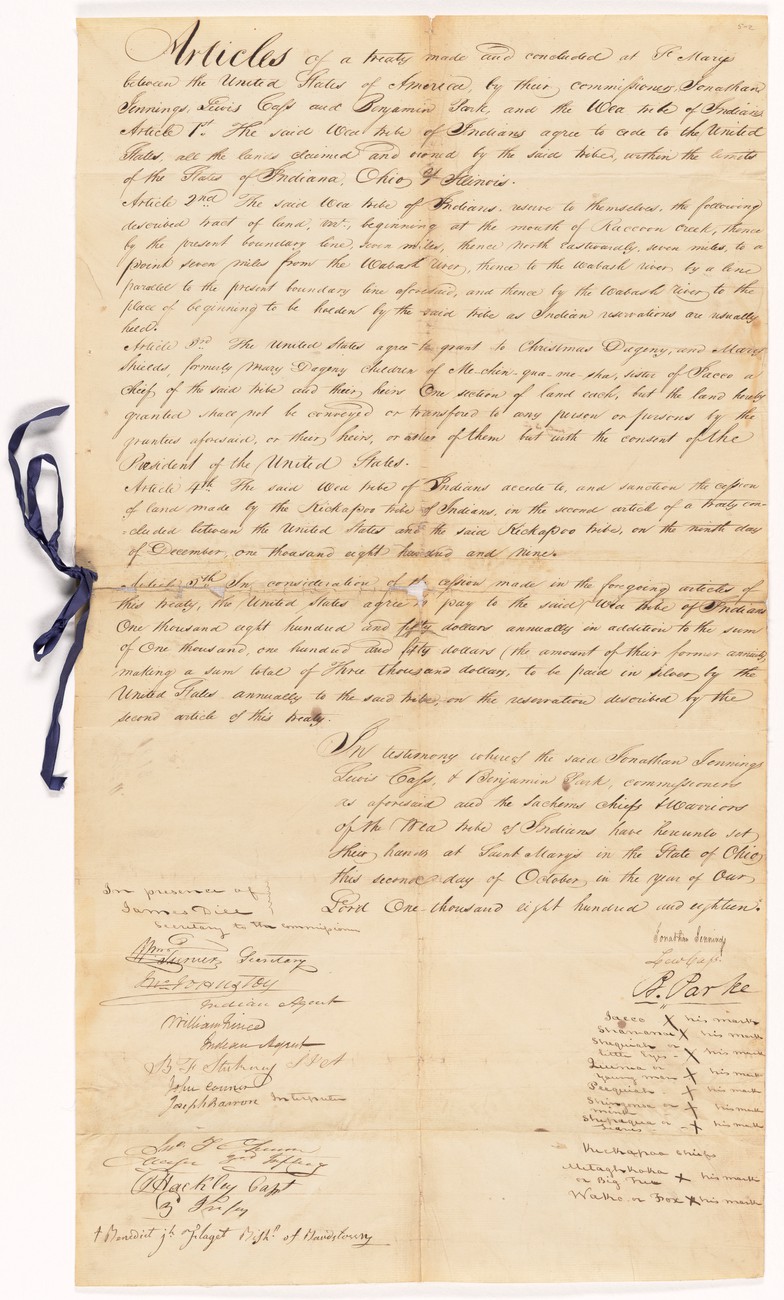 502
Articles of a treaty made and concluded at St Marys
between the United States of America, by their commissioners, Jonathan
Jennings, Lewis Cass and Benjamin Park, and the Wea tribe of Indians
Article 1st. The said Wea tribe of Indians agree to cede to the United
States, all the lands claimed and owned by the said tribe, within the limits
of the States of Indiana, Ohio, & Illinois.
Article 2nd The said Wea tribe of Indians, reserve to themselves, the following
described tract of land, viz, beginning at the mouth of Raccoon Creek, thence
by the present boundary line, seven miles, thence north eastwardly, seven miles, to a
point seven miles from the Wabash river, thence to the wabash river, by a line
parallel to the present boundary line aforesaid, and thence by the Wabash river, to the
place of beginning to be holden by the said tribe as Indian reservations are usually
held.
Article 3rd The United States agree to grant to Christmas Dageny, and Mary
Shields, formerly Mary Dageny children of Me-chin-qua-me-sha, sister of Jacco a
chief, of the said tribe and their heirs One section of land each, but the land hereby
granted shall not be conveyed or transferd to any person or persons by the
grantees aforesaid, or their heirs, or either of them but with the consent of the
President of the United States.
Article 4th The said Wea tribe of Indians accede to, and sanction the cession
of land made by the Kickapoo tribe of Indians, in the second article of a treaty con-
-cluded between the United States and the said Kickapoo tribe, on the ninth day
of December, one thousand eight hundred and nine.
Article 5th In consideration of the cession made in the foregoing articles of
this treaty, the United States agree to pay to the said Wea tribe of Indians
One thousand eight hundred and fifty dollars annually in addition to the sum
of One thousand, one hundred and fifty dollars (the amount of their former annuity,
making a sum total of Three thousand dollars, to be paid in silver, by the
United States annually to the said tribe, on the reservation described by the
second article of this treaty.
In testimony whereof the said Jonathan Jennings
Lewis Cass, & Benjamin Park, commissioners
as aforesaid and the Sachems chiefs & Warriors
of the Wea tribe of Indians have hereunto set
their hands at Saint Mary's in the State of Ohio,
this second day of October, in the year of Our
Lord One thousand eight hundred and eighteen.
In presence of
James Dill
Secretary to the commission
Wm Turner Secretary
Jno Johnston
Indian Agent
William Prince
Indian Agent
B. F. Stickney S I A
John Conner
Joseph Barron Interpreter
3d Infy
G Hackley Capt
3d Infy
+ Benedict jh Flaget Bishp of Bardstown
Jonathan Jennings
Lew Cass
B. Parke
Jacco X his mark
Shamana X his mark
Shequiah or
little Eyes - X his mark
Quema or
young man - X his mark
Pequiah - X his mark
Shingonsa or X his mark
mink
Shepaqua or - X his mark
leaves -
Kickapoo chiefs
Metagekoka
or Big Tree X his mark
Wako or Fox X his mark